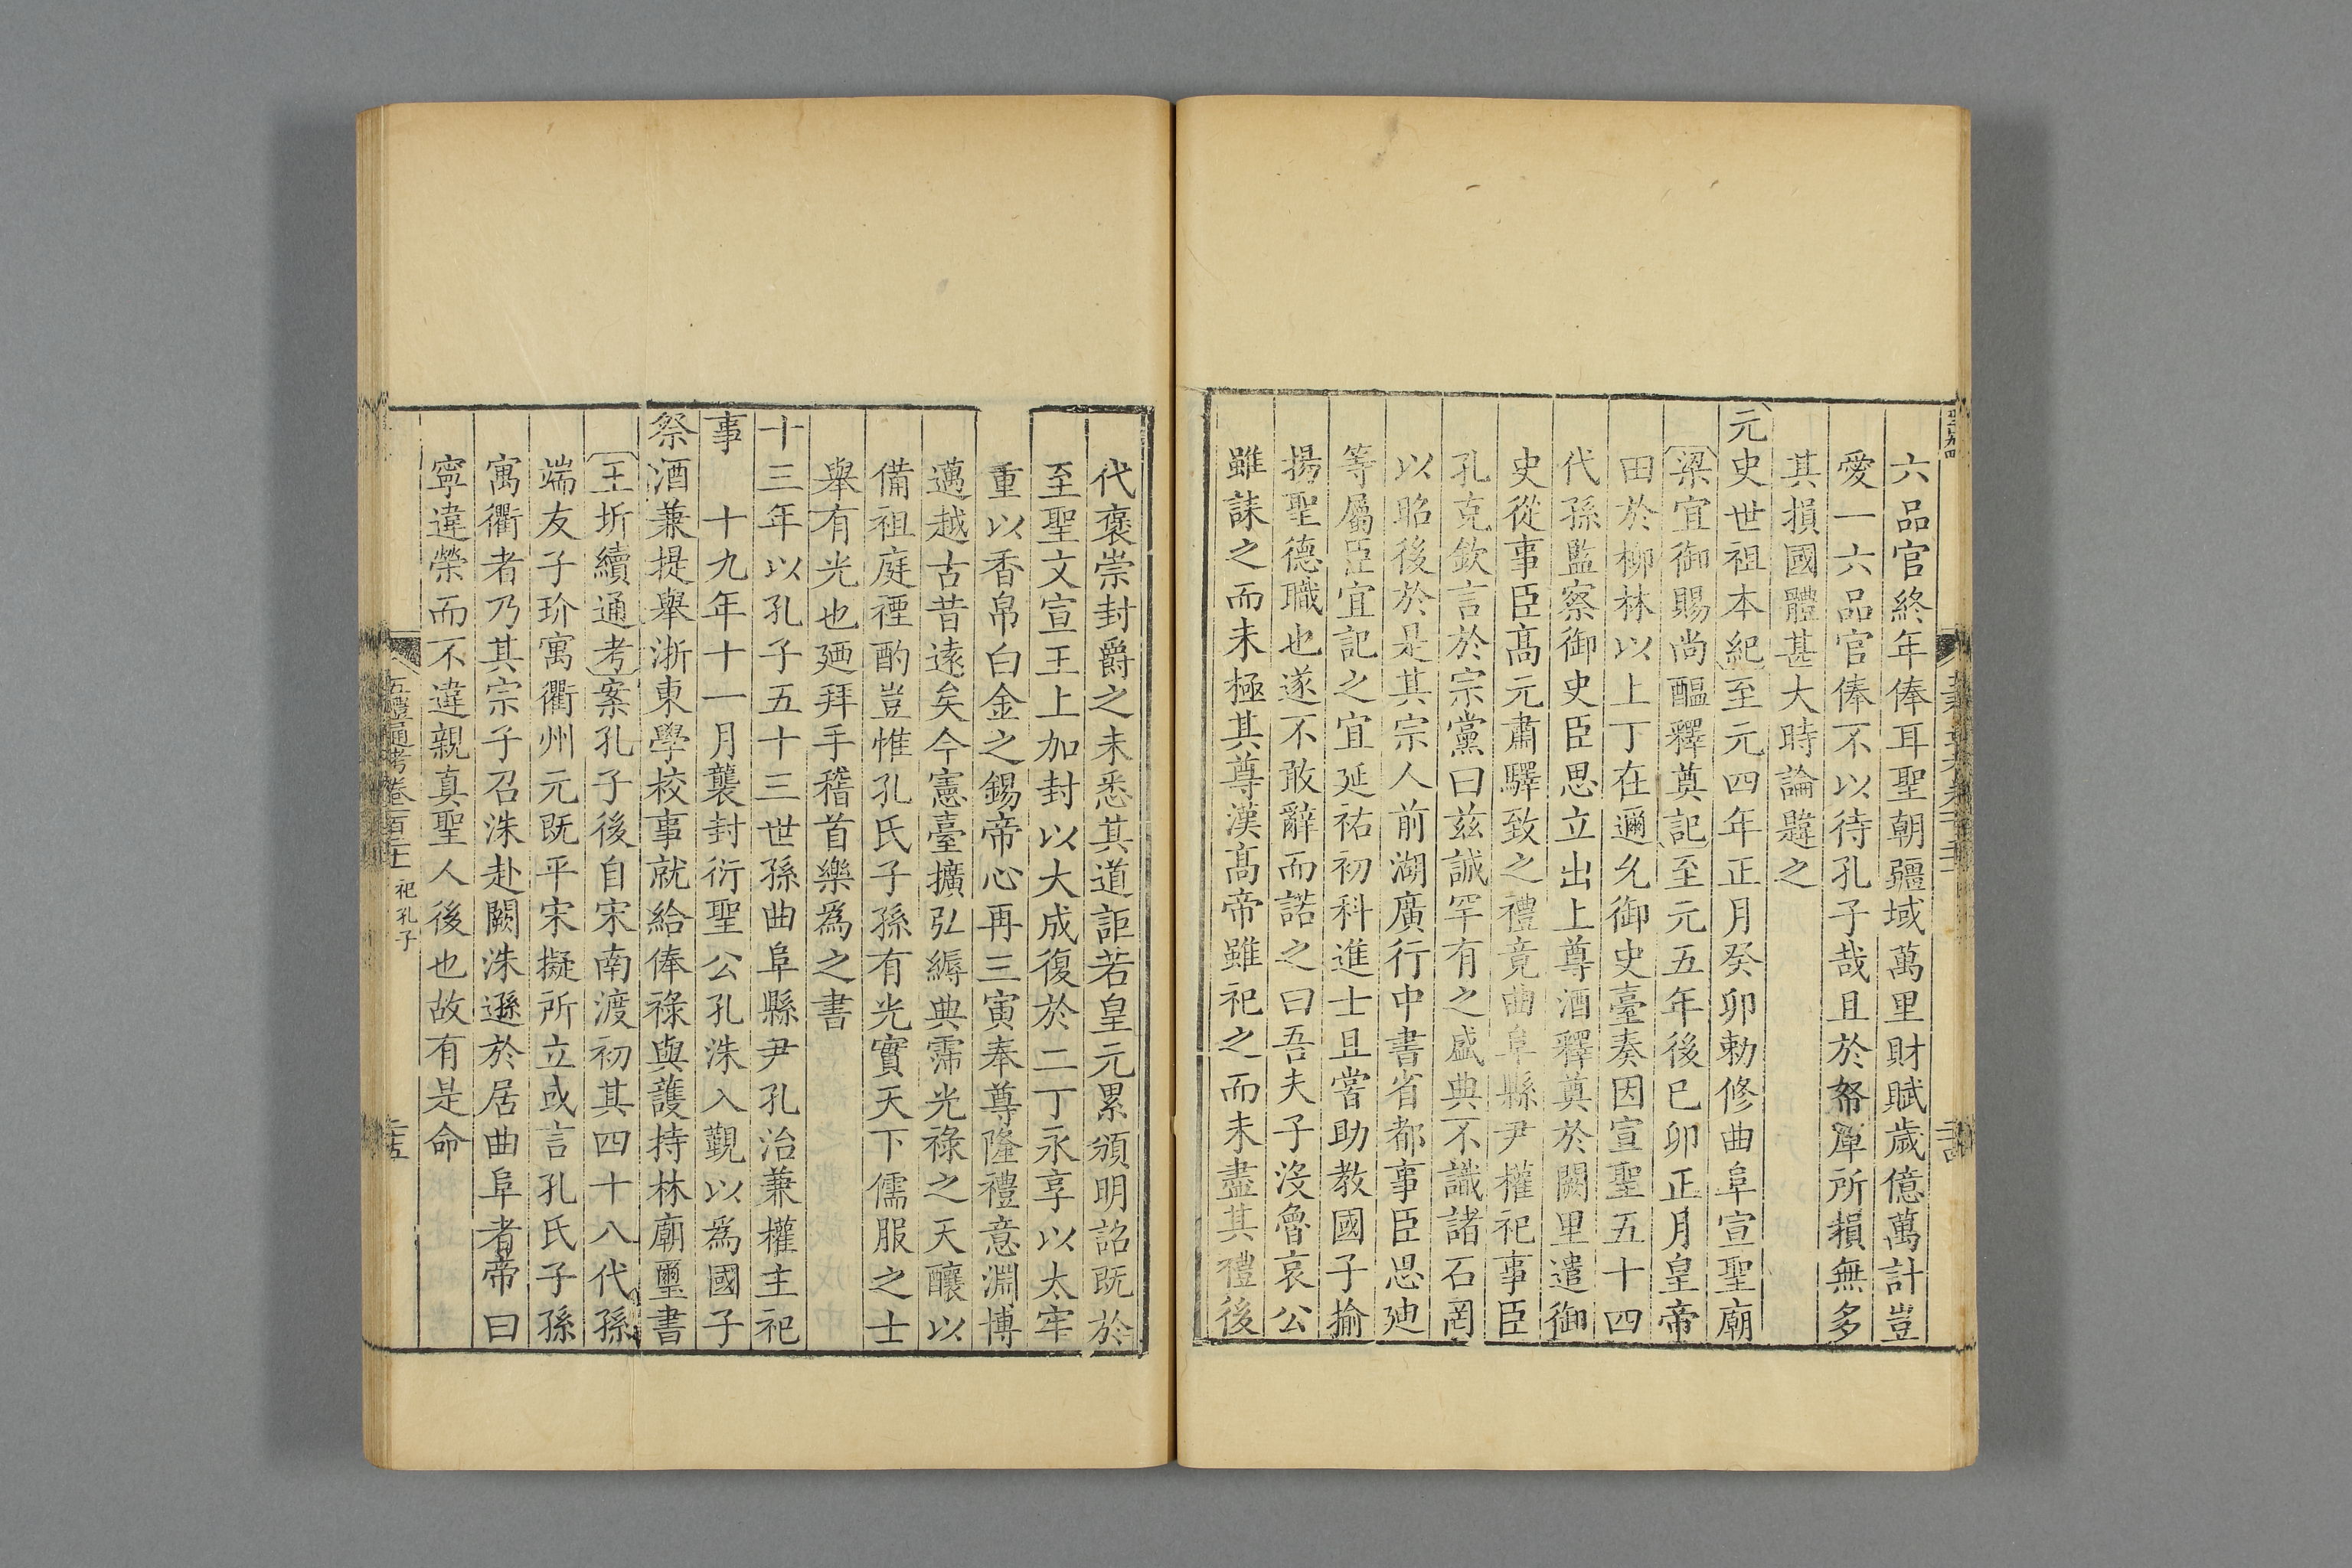 六品官終年俸耳聖朝疆域萬里財賦歲億萬計豈
愛一六品官俸不以待孔子哉且於帑廩所損無多
其損國體甚大時論韙之
元史世祖本紀至元四年正月癸卯勅修曲阜宣聖廟
梁宜御賜尚醞釋奠記至元五年後巳卯正月皇帝
田於柳林以上丁在邇允御史臺奏因宣聖五十四
代孫監察御史臣思立出上尊酒釋奠於闕里遣御
史從事臣髙元肅驛致之禮竟曲阜縣尹權祀事臣
孔克欽言於宗黨曰兹誠罕有之盛典不識諸石罔
以昭後於是其宗人前湖廣行中書省都事臣思廸
等屬臣宜記之宜延祐初科進士且嘗助教國子揄
揚聖德職也遂不敢辭而諾之曰吾夫子沒魯哀公
雖誄之而未極其尊漢髙帝雖祀之而未盡其禮後
代褒崇封爵之未悉其道詎若皇元累頒明詔既於
至聖文宣王上加封以大成復於二丁永享以太牢
重以香帛白金之錫帝心再三寅奉尊隆禮意淵博
邁越古昔遠矣今憲臺擴弘縟典霈光祿之天釀以
備祖庭禋酌豈惟孔氏子孫有光實天下儒服之士
舉有光也廼拜手稽首樂爲之書
十三年以孔子五十三世孫曲阜縣尹孔治兼權主祀
事　十九年十一月襲封衍聖公孔洙入覲以爲國子
祭酒兼提舉浙東學校事就給俸祿與護持林廟璽書
王圻續通考案孔子後自宋南渡初其四十八代孫
端友子玠寓衢州元既平宋擬所立或言孔氏子孫
寓衢者乃其宗子召洙赴闕洙遜於居曲阜者帝曰
寧違榮而不違親真聖人後也故有是命
五禮通考卷一百十七　祀孔子　二十五